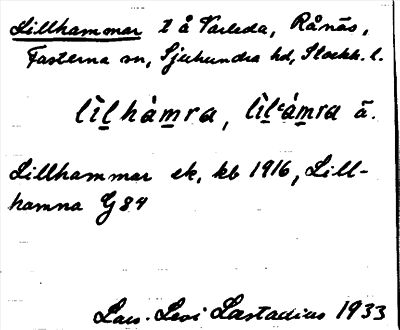 Lillhammar t å Varleda, Rånäs,
Fasterna sn, Sjuhundra hd, Stockh. l.
lìḻhàm̱ra, lìḻ'àm̱ra ā.
Lillhammar ek, kb 1916, Lill-
hamna G 84
Lars-Levi Læstadius 1933